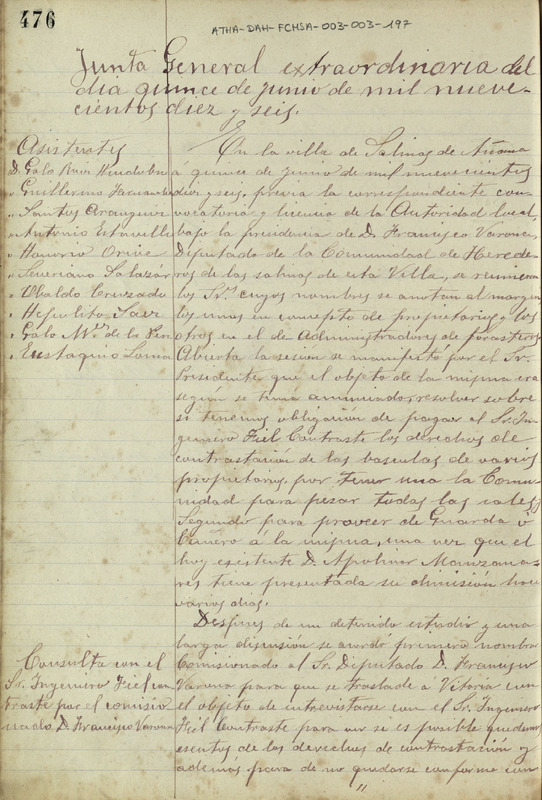 476
ATHA-DAH-FCHSA-003-003-197
Junta General extraordinaria del
dia quince de junio de mil nueve-
cientos diez y seis.
Asistentes
D. Galo Ruiz
" Guillermo
" Santos Aranguiz
" Antonio
" Honorio Orive
" Severiano Salazar
" Ubaldo Cruzado
" Hipolito Saez
" Galo M.ª de la
" Eustaquio
En la villa de Salinas de Añana
á quince de junio de mil nuevecientos
diez y seis, previa la correspondiente con-
vocatoria y licencia de la Autoridad local,
bajo la presidencia de D. Francisco Varona,
Diputado de la Comunidad de Herede-
ros de las salinas de esta Villa, se reunieron
los Sr.s cuyos nombres se anotan al margen
los unos en concepto de propietarios y los
otros en el de Administradores de forasteros
Abierta la sesion se manifestó por el Sr.
Presidente que el objeto de la misma era
según se tenia anunciado, resolver sobre
si tenemos obligación de pagar al Sr. In-
geniero Fiel Contraste los derechos de
contrastación de las basculas de varios
propietarios, por tener una la Comu-
nidad para pesar todas las sales,
Segundo para proveer de Guarda ó
á la misma, una vez que el
hoy existente D. Apolinar Manzana-
res tiene presentada su dimisión hace
varios dias.
Despues de un detenido estudio y una
larga discusión se acordó primero nombrar
Comisionado al Sr. Diputado D. Francisco
Varona para que se traslade á Vitoria con
el objeto de entrevistarse con el Sr. Ingeniero
Fiel Contraste para ver si es posible quedemos
esentos de los derechos de contrastación y
además para de no quedarse conforme con
"
Consulta con el
Sr. Ingeniero Fiel con
traste por el comisio
nado D. Francisco Varona